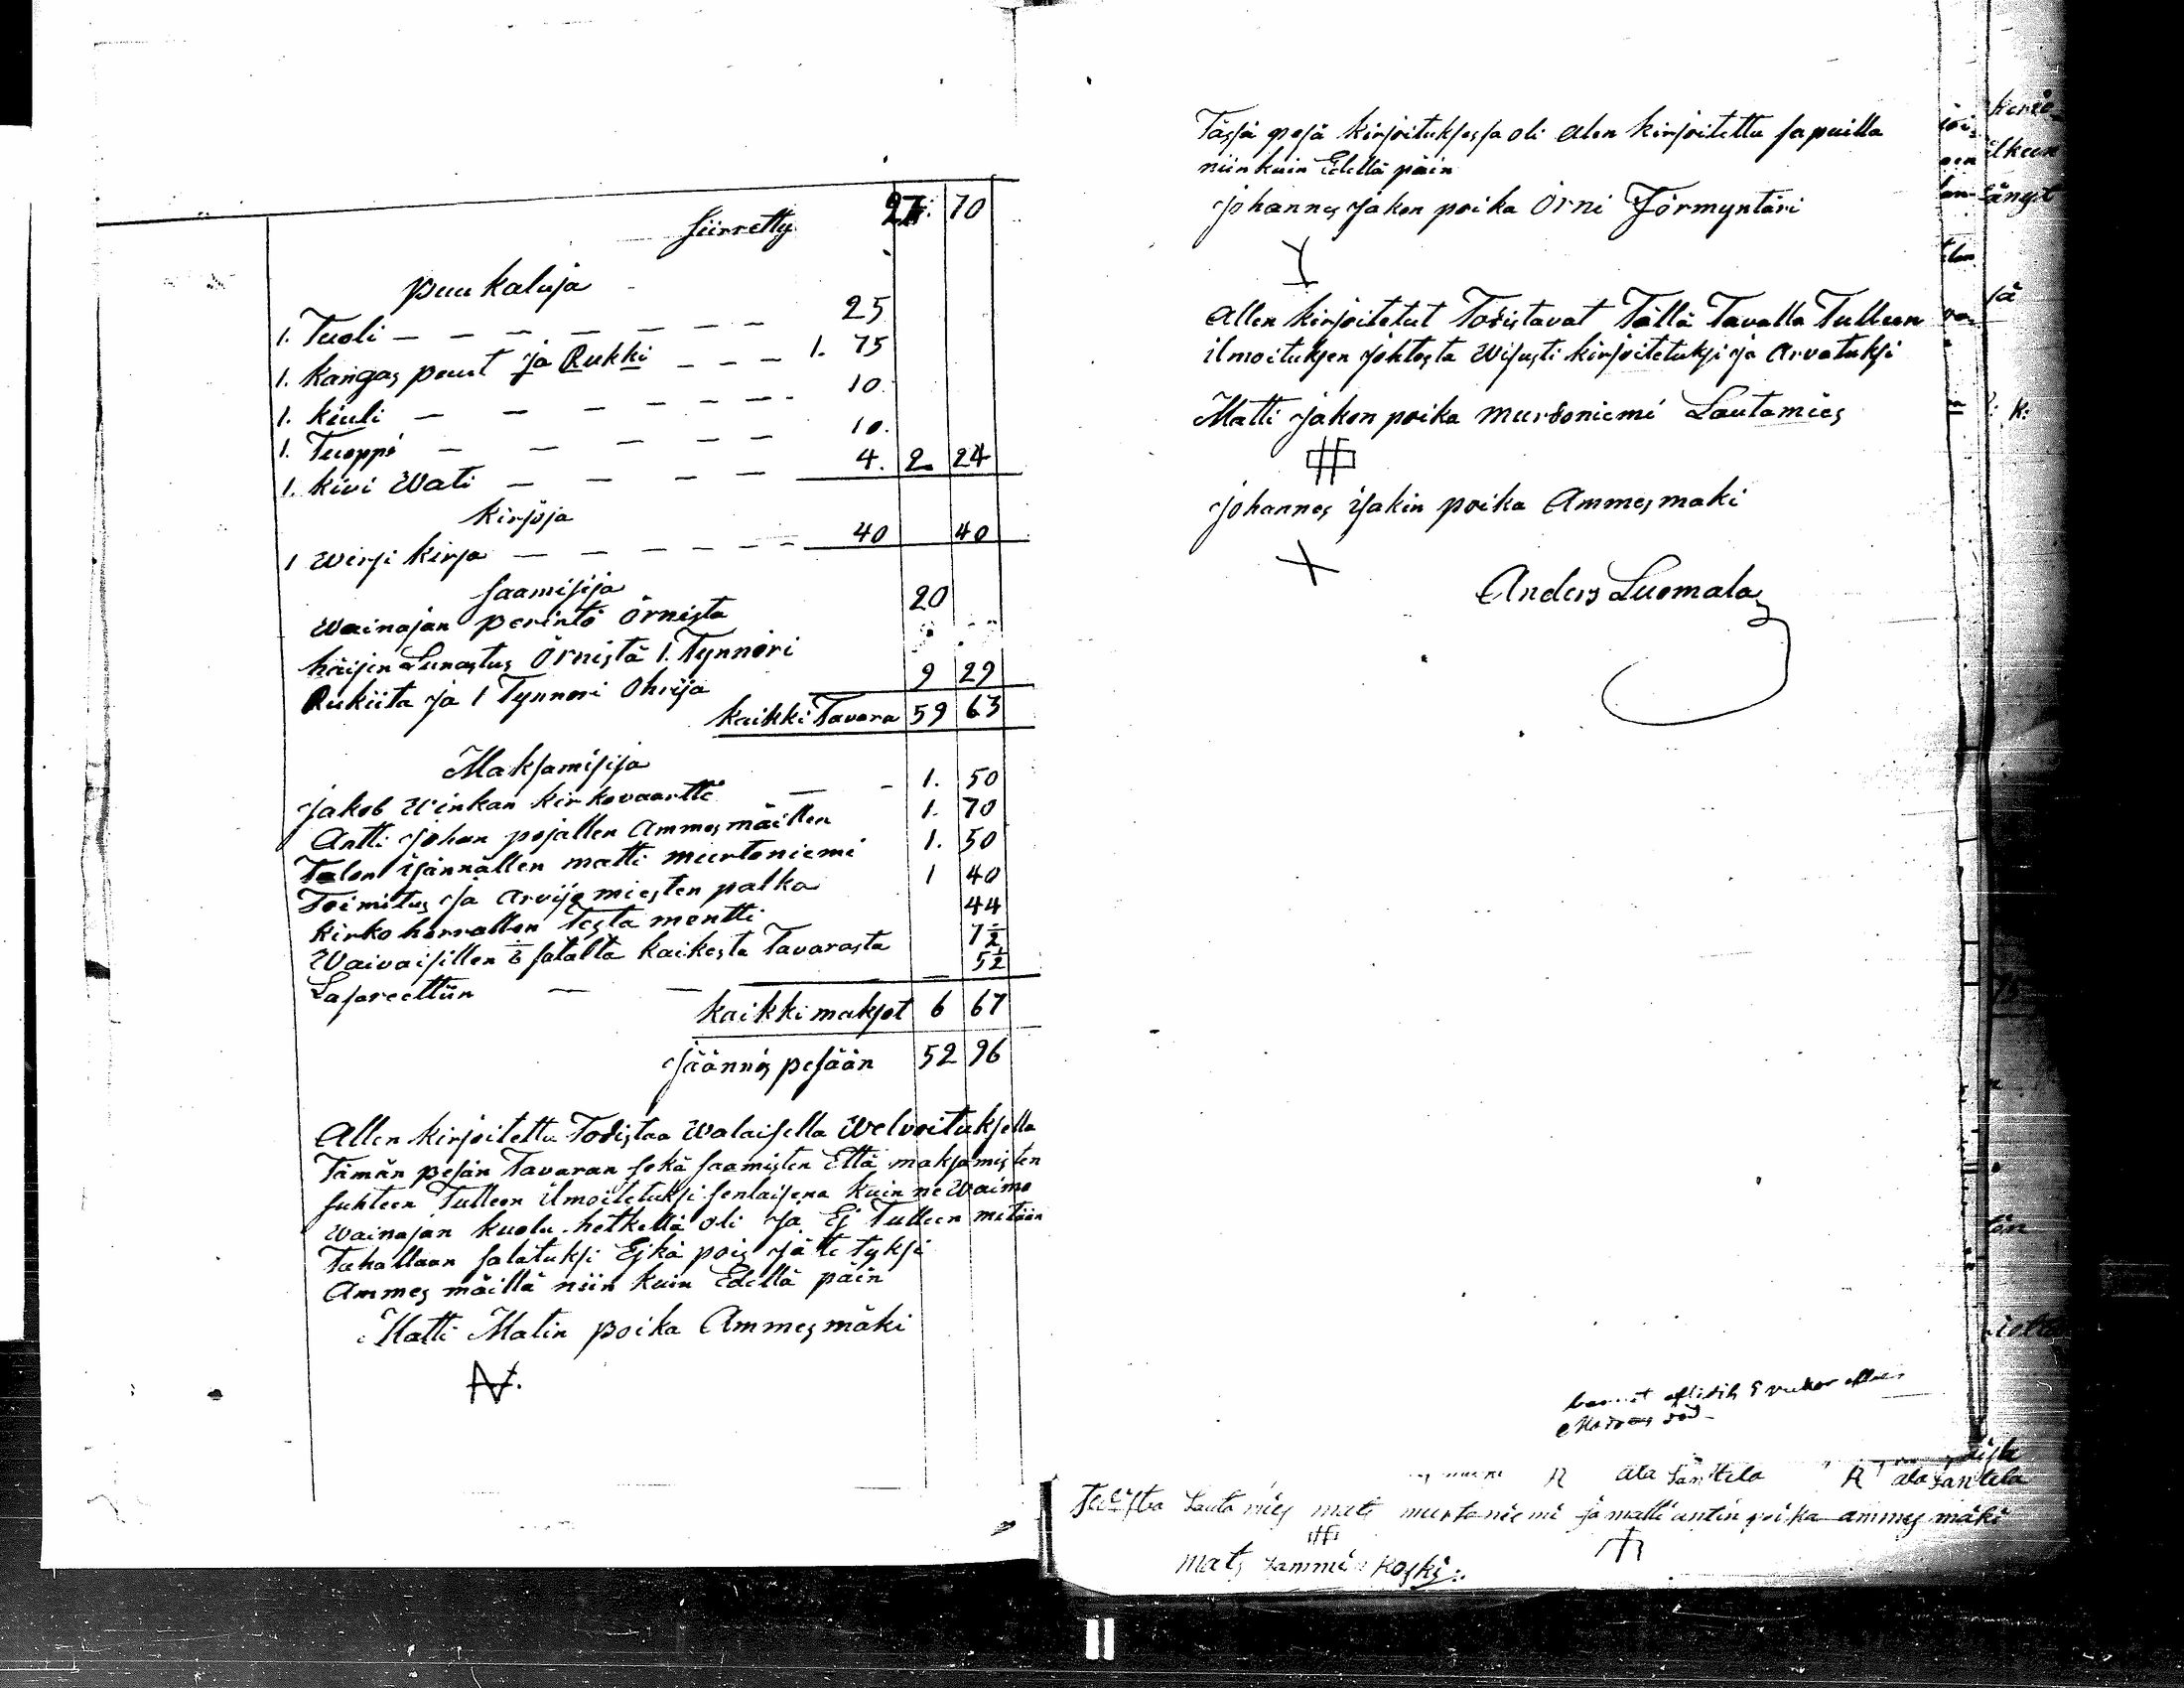 Siirretty 27: 70
puu kaluja
1. Tuoli — — — — — — — 25
1. kangas puut ja Rukki — — — 1. 75
1. kiuli — — — — — — — 10.
1. Tuoppi — — — — — — 10.
1. kivi Wati — — — — — 4. 2 24
kirjoja
1 Wirsi kirja — — — — — — 40 40
saamisija
Wainajan perintö Örnistä 20
häijin Lunastus Örnistä 1. Tynnöri
Rukiita ja 1 Tynnöri Ohrija 9 29
kaikki Tavara 59 63
Maksamisija
Jakob Winkan kirkovaartti — - 1. 50
Antti Johan pojallen Ammesmäillen 1. 70
Talon isännällen matti murtoniemi 1. 50
Toimitus ja arvijo miesten palka 1 40
kirko herrallen Testa mentti 44
Waivaisillen ⅛ satalta kaikesta Tavarasta 7½
Lasareettiin — — 5½
kaikki maksot 6 67
Jäännös pesään 52 96
Allen kirjoitettu Todistaa Walaisella Welvoituksella
Tämän pesän Tavaran sekä saamisten Että maksamisten
suhteen Tulleen ilmoitetuksi senlaisena kuin ne Waimo
Wainajan kuolu hetkellä oli ja Ej Tulleen mitään
Tahallaan salatuksi Ejkä pois jätetyksi
Ammes mäillä niin kuin Edellä päin
Matti Matin poika Ammesmäki
Tässä pesä kirjoituksessa oli alen kirjoitettu sapuilla
niin kuin Edellä päin
Johannes Jakon poika Örni Förmyntäri
Allen kirjoitetut Todistavat Tällä Tavalla Tulleen
ilmoituksen johtosta Wisusti kirjoitetuksi ja Arvatuksi
Matti Jakon poika murdoniemi Lautamies
Johannes isakin poika Ammesmaki
Anders Luomala
ala Jänttila R ala Jänttila
Todistaa Lautamies mats murtoniemi ja matti antin poika ammesmäki
mats Jammin koski